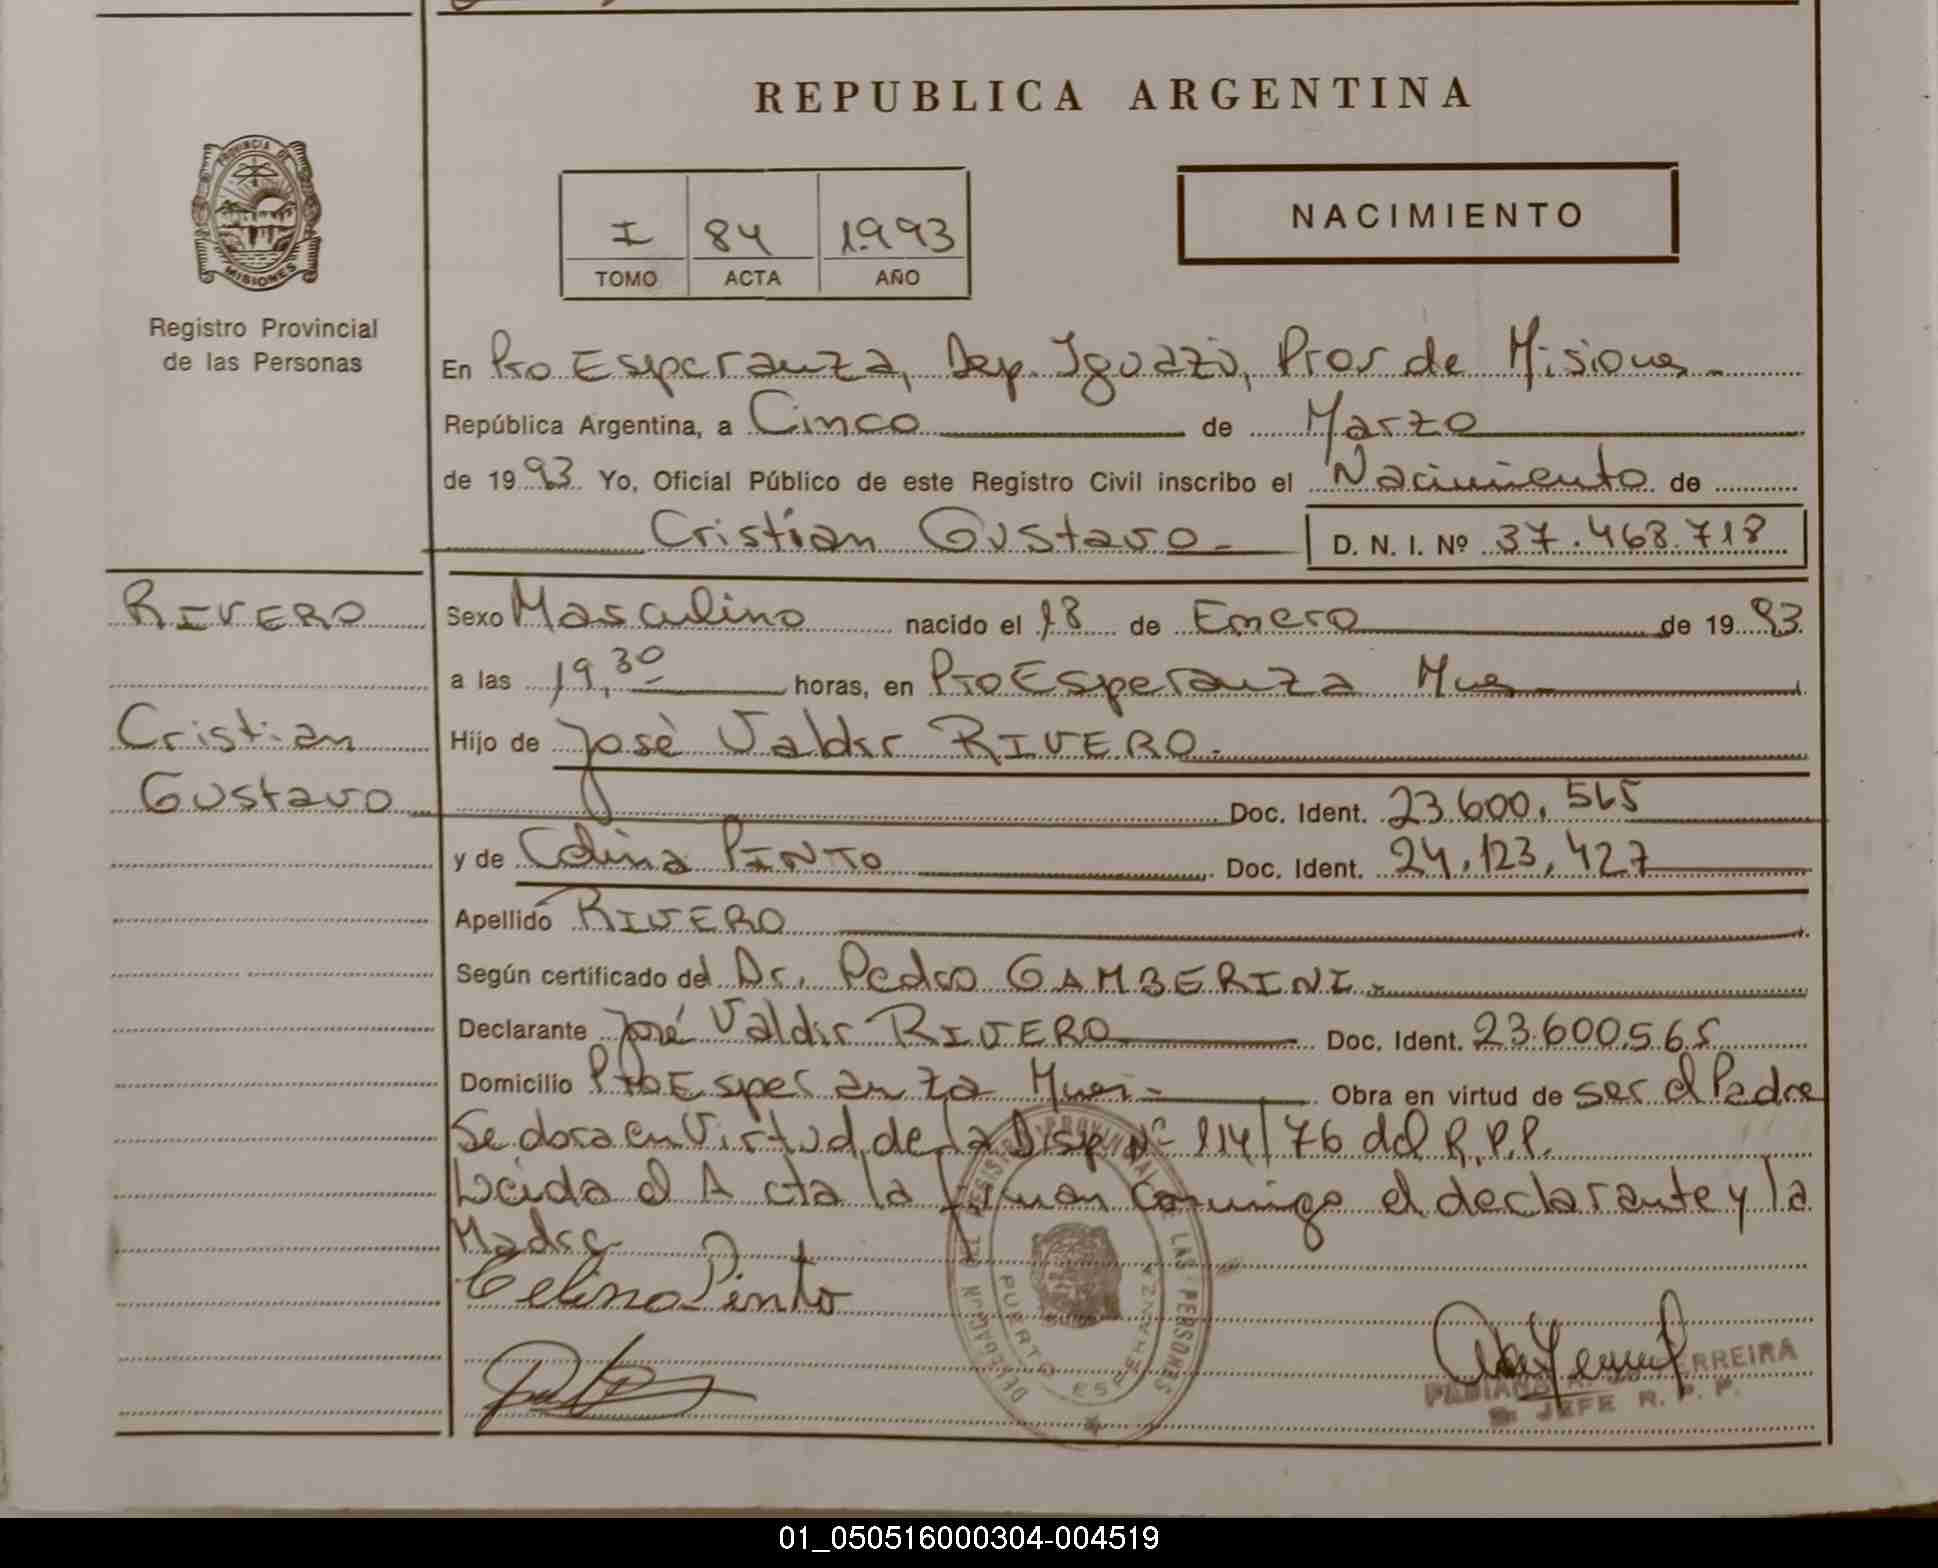 REPUBLICA ARGENTINA
PROVINCIA DE
MISIONES
Registro Provincial
de las Personas
I 84 1993
TOMO ACTA AÑO
NACIMIENTO
En Pto Esperanza, Dep. Iguazú, Prov de Misiones
República Argentina, a Cinco de Marzo
de 1993 Yo, Oficial Público de este Registro Civil inscribo el Nacimiento de
Cristian Gustavo D. N. I. Nº 37.468.718
RIVERO
Cristian
Gustavo
Sexo Masculino nacido el 18 de Enero de 1993
a las 19,30 horas, en Pto Esperanza Mnes
Hijo de José Valdir RIVERO
Doc. Ident. 23.600.565
y de Celina PINTO Doc. Ident. 24.123.427
Apellido RIVERO
Según certificado del Dr. Pedro GAMBERINI
Declarante José Valdir RIVERO Doc. Ident. 23.600.565
Domicilio Pto Esperanza Obra en virtud de ser el Padre
en Virtud de la Disp Nº 114/76 del R.P.P.
Leida el Acta la firman conmigo el declarante y la
Madre
Celina Pinto
REGISTRO PROVINCIAL DE LAS PERSONAS
PUERTO ESPERANZA
FERREIRA
JEFE R. P. P.
01_050516000304-004519